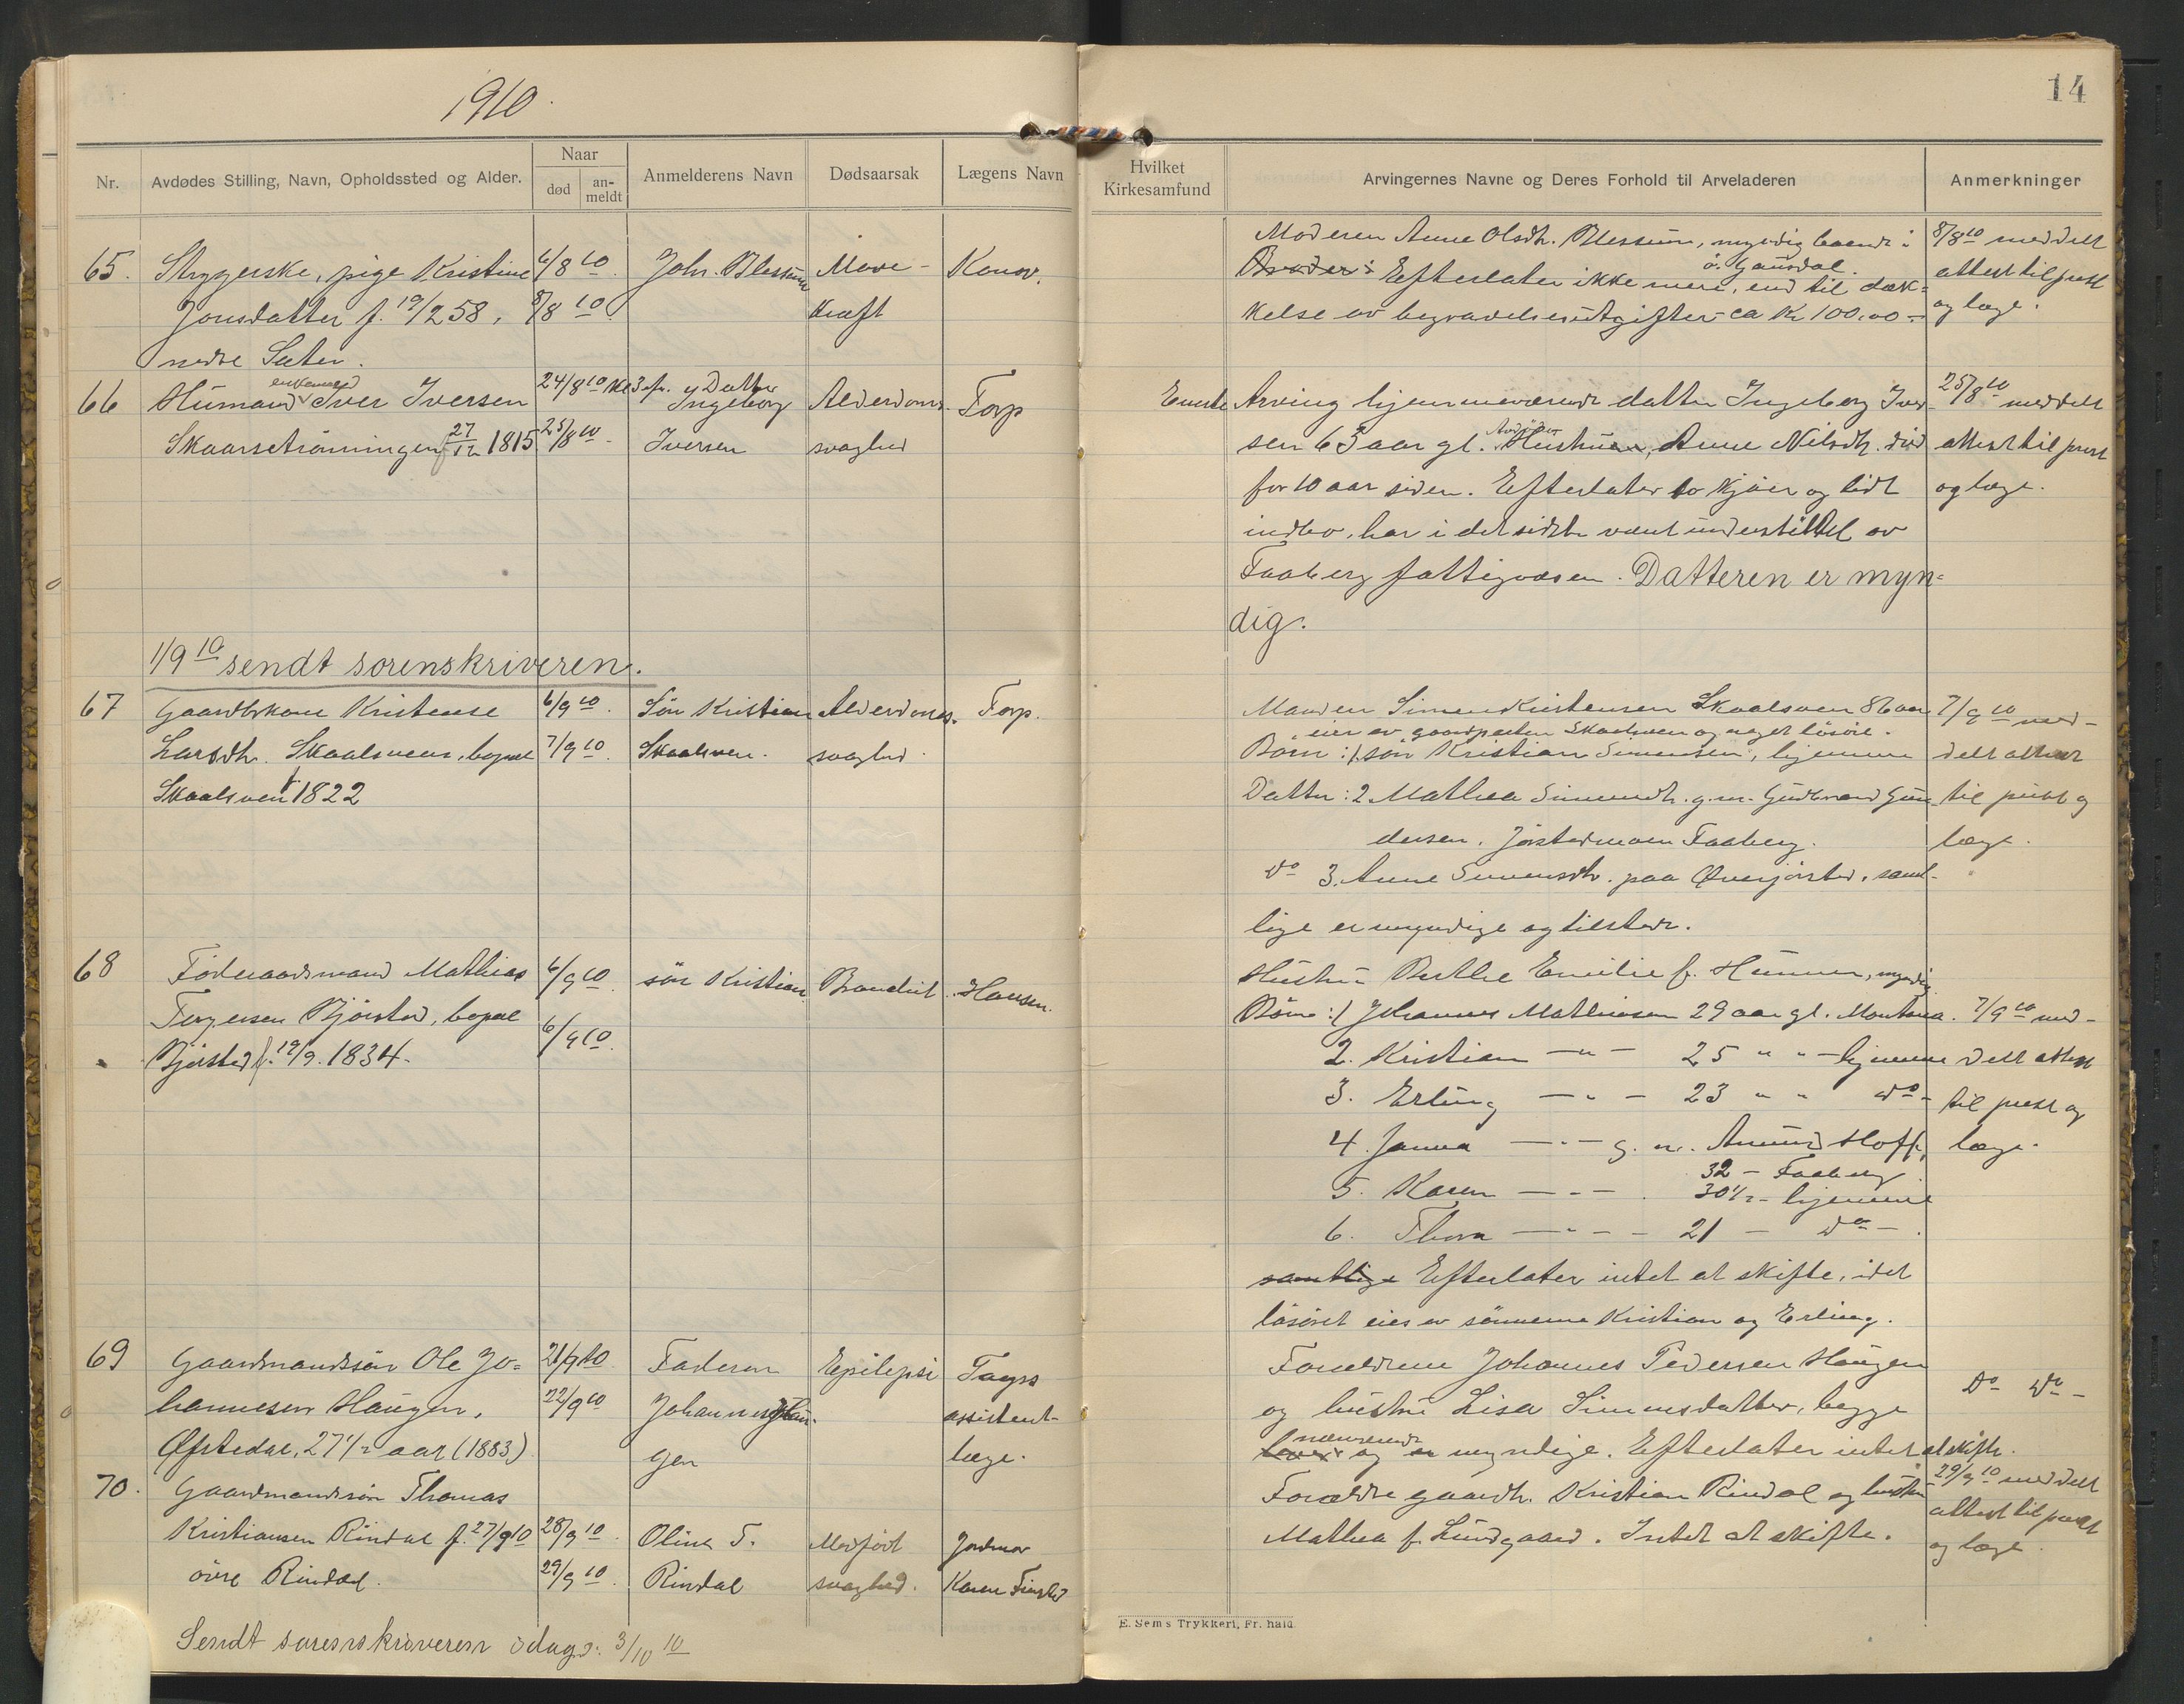 1910
14
Nr.
Avdødes Stilling, Navn, Opholdssted og Alder.
Naar
død
an-
meldt
Anmelderens Navn
Dødsaarsak
Lægens Navn
Hvilket
Kirkesamfund
Arvingernes Navne og Deres Forhold til Arveladeren
Anmerkninger
65. Strygerske, pige Kristine 6/8 10. Johs. Blessum Mave- Konow.
Jonsdatter f. 19/2 58, 8/8 10 kræft
nedre Sæter.
Moderen Anne Olsdtr. Blessum, myndig boende i 8/8 10 meddelt
ö. Gausdal.
Efterlater ikke mere, end til dæk- attest til prest
kelse av begravelsesutgifter ca Kr 100.00 og læge.
enkemand
66 Husmand Iver Iversen 24/8 10 Kl 3 ef. Datter Ingeborg Alderdoms- Torp
Skaarsetrönningen f 27/12 1815. 25/8 10. Iversen svaghed
Eneste Arving hjemmeværende datter Ingeborg Iver- 25/8 10 meddelt
sen 65 aar gl. Hustru, Anne Nilsdtr. död attest til prest
for 10 aar siden. Efterlater to kjöer og lidt og læge.
indbo, har i det sidste været understöttet av
Faaberg fattigvæsen. Datteren er myn-
dig.
1/9 10 sendt sorenskriveren.
67 Gaardbkone Kristense 6/9 10. Sön Kristian Alderdoms- Torp.
Larsdtr. Skaalsveen, bopæl 7/9 10. Skaalsveen. svaghed.
Skaalsveen f 1822
Manden Simen Kristensen Skaalsveen 86 aar 7/9 10 med-
eier av gaardparten Skaalsveen og noget lösöre.
Börn: 1. sön Kristian Simensen, hjemme delt attest
Datter: 2. Mathea Simensdtr. g.m. Gudbrand Gun- til prest og
dersen. Jörstadmoen Faaberg. læge.
do 3. Anne Simensdtr. paa Överjörstad, samt-
lige er myndige og tilstede.
68 Föderaadsmand Mathias 6/9 10. sön Kristian Hansen.
Bjørstad, bopæl 6/9 10.
Bjørstad f. 19/9. 1834.
Hustru Berthe Emilie f. Hunner, myndig
Börn: 1 Johannes Mathiasen 29 aar gl. Montana. 7/9 10 med-
2. Kristian —"— 25 " " — hjemme delt attest
3. Erling —"— 23 " " do — til prest og
4. Janna —"— g. m. Amund Hoff, læge.
32 — Faaberg
5. Karen —"— 30 1/2 — hjemme
6. Thora —"— 21 — do —
samtlige Efterlater intet at skifte, idet
lösöret eies av sönnerne Kristian og Erling.
69 Gaardmandssön Ole Jo- 21/9 10 Faderen Epilepsi
hannesen Haugen, 22/9 10 Johannes Hau- assistent-
Øfstedal, 27 1/2 aar (1883) gen læge.
Forældrene Johannes Pedersen Haugen Do do —
og hustru Lisa Simensdatter, begge
nærværende
og myndige. Efterlater intet at skifte.
70. Gaardmandssön Thomas
Kristiansen Rindal f. 27/9 10 28/9 10. Oline T. Medfödt Jordmor
övre Rindal. 29/9 10. Rindal svaghed. Karen
Forældre gaardb. Kristian Rindal og hustru 29/9 10 meddelt
Mathea f. Lundgaard. Intet at skifte. attest til prest
og læge.
Sendt sorenskriveren idag. 3/10 10
E. Sems Trykkeri, Fr.hald